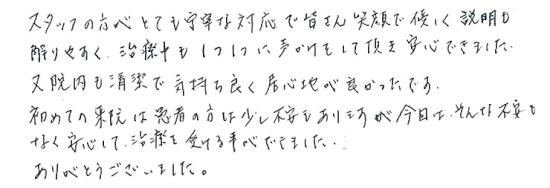 スタッフの方がとても丁寧な対応で皆さん笑顔で優しく説明も
解りやすく、治療中も1つ1つに声かけをして頂き安心できました。
又院内も清潔で気持ち良く居心地が良かったです。
初めての来院は患者の方は少し不安もありますが今日は、そんな不安も
なく安心して、治療を受ける事ができました。
ありがとうございました。